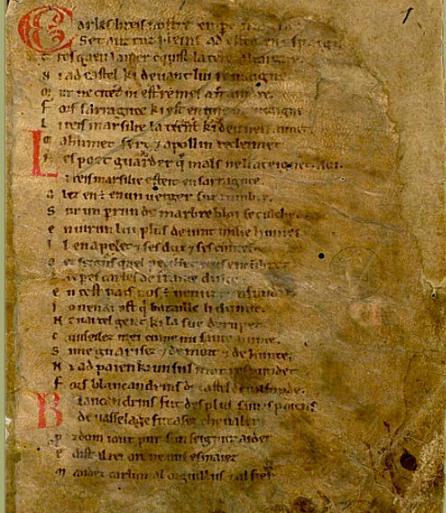 1
Carles li reis nostre emper
Set anz tuz pleins ad estet en espaigne
tresquen la mer cunquist la tere altaigne
N i ad castel ki deuant lui remaigne
M ur ne citet ni est remes a fraindre
F ors sarraguce ki est en une muntaigne
L i reis marsilie la tient ki deu nen aimet
M ahumet sert ⁊ apollin recleimet
N es poet guarder que mals ne li ateignet. aoi
L i reis marsilie esteit en sarraguce.
A lez en est en un uerger suz lumbre.
S ur un perrun de marbre bloi se culched
E nuirun lui plus de uint milie humes
I l en apelet ⁊ ses dux ⁊ ses cuntes
O ez seignurs quel pecchet nus encumbret
carles de france dulce
E n cest pais nos est uenuz
I o nen ai ost qui bataille li dunne
N en ai tel gent ki la sue derumpet
C unseilez mei cume mi saiue hume.
S i me guarisez ⁊ de mort ⁊ de hunte.
N i ad paien ki un sul mot respundet
F ors blancandrins de castel de ualfunde.
B lancandrins fut des plus saiues paiens
de uasselage fut asez cheualer
P rozdom i out pur sun seignur aider
E dist al rei or ne uus esmaiez
M andez carlun al orguillus ⁊ al fier